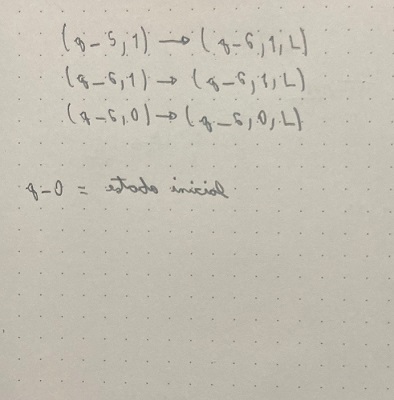 (q-5,1) → (q-6,1,L)
(q-6,1) → (q-6,1,L)
(q-6,0) → (q-6,0,L)
q-0 = estado inicial